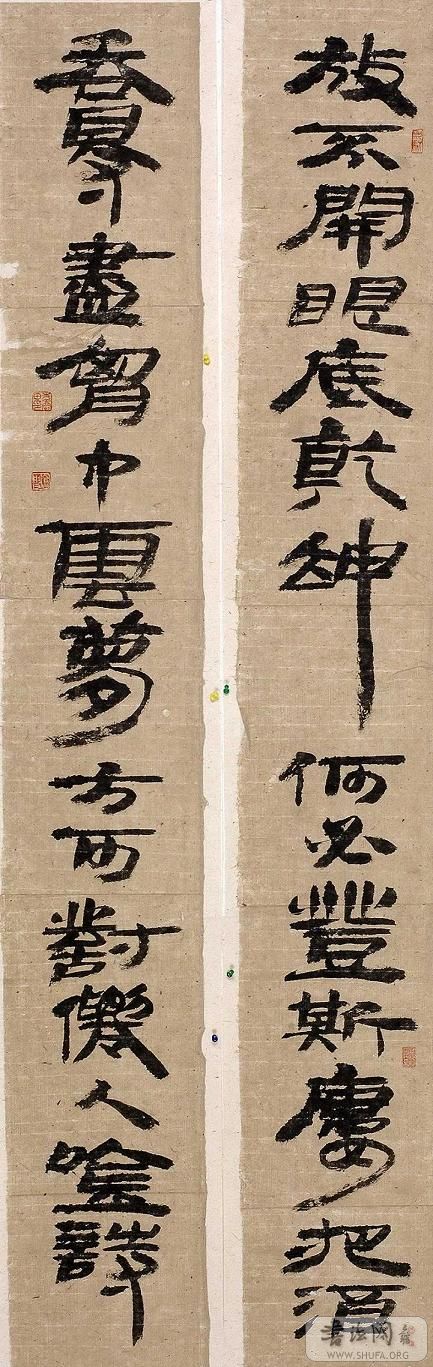 放不開眼底乾坤何必登斯廔把酒
吞得盡胷中雲夢方可對僊人唫詩
书法网
WWW.SHUFA.ORG